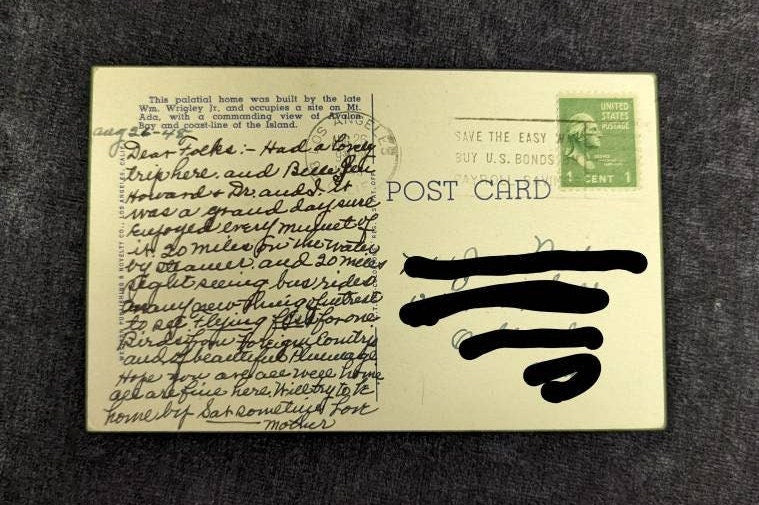 This palatial home was built by the late
Wm. Wrigley Jr. and occupies a site on Mt.
Ada, with a commanding view of Avalon
Bay and coast-line of the Island.
Aug 26-48
Dear Folks:- Had a lovely
trip here. and Belle
Howard & Dr. and I. It
was a grand day sure
enjoyed every minuet of
it. 20 miles on the water
by steamer. and 20 miles
sight seeing bus rides
many new things of intrest
to see Flying fish for one
Birds from Foreign Contrys
and of beautiful Plumage
Hope you are all well home
all are fine here. Will try to be
home by Sat sometime Love
Mother
LOS ANGELES
SAVE THE EASY
BUY U.S. BONDS
PAYROLL SAVINGS
UNITED
STATES
POSTAGE
1 CENT 1
POST CARD